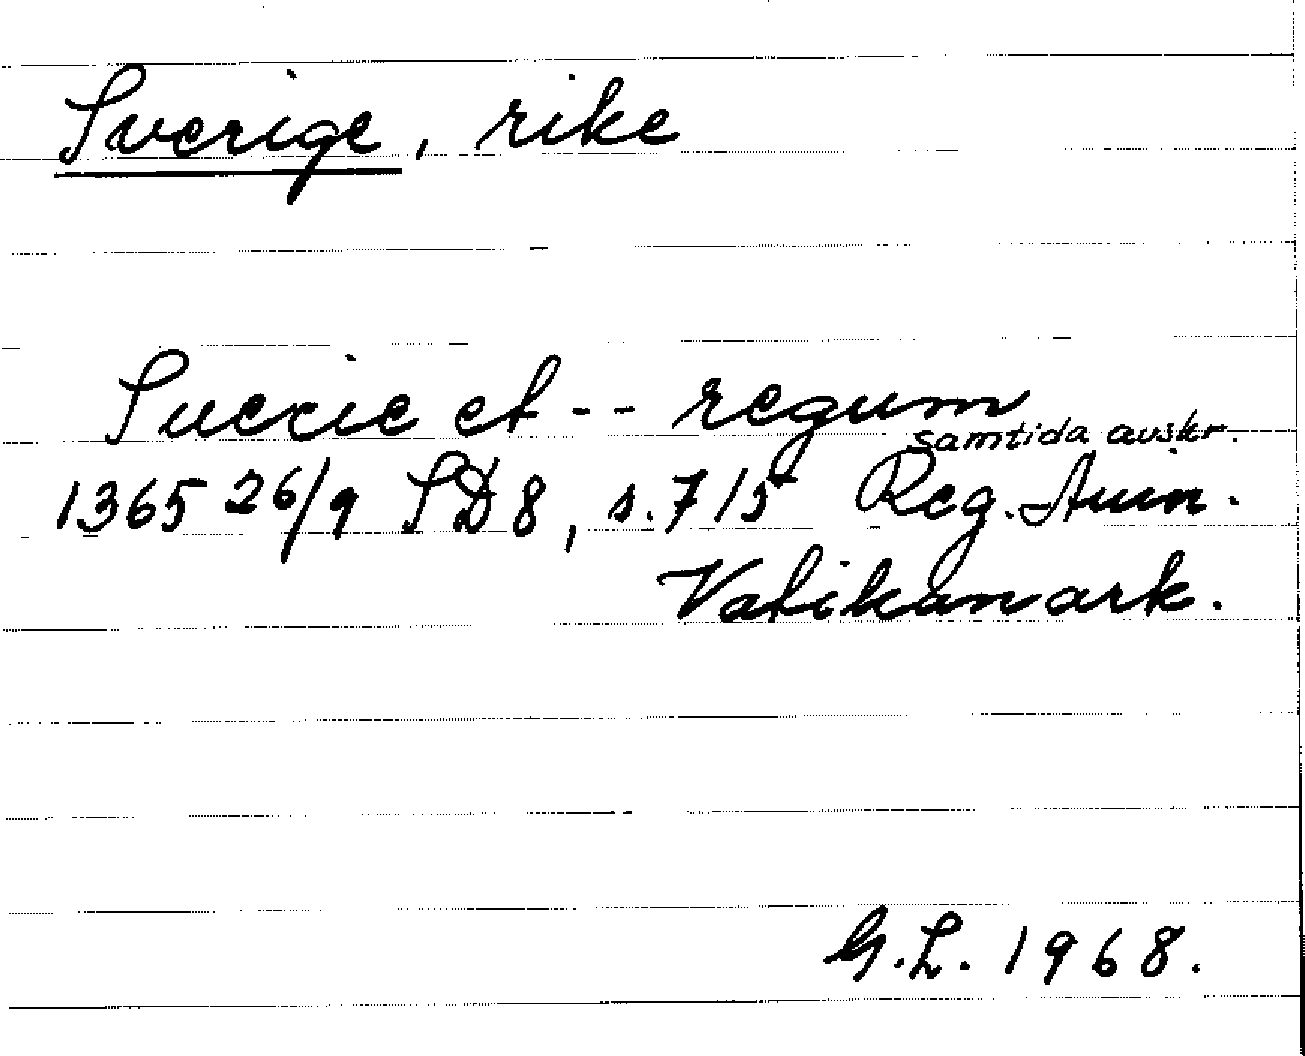 Sverige, rike
Suecie et -- regum
samtida avskr.
1365 26/9 SD 8, s. 715 Reg. Avin.
Vatikanark.
G.L. 1968.